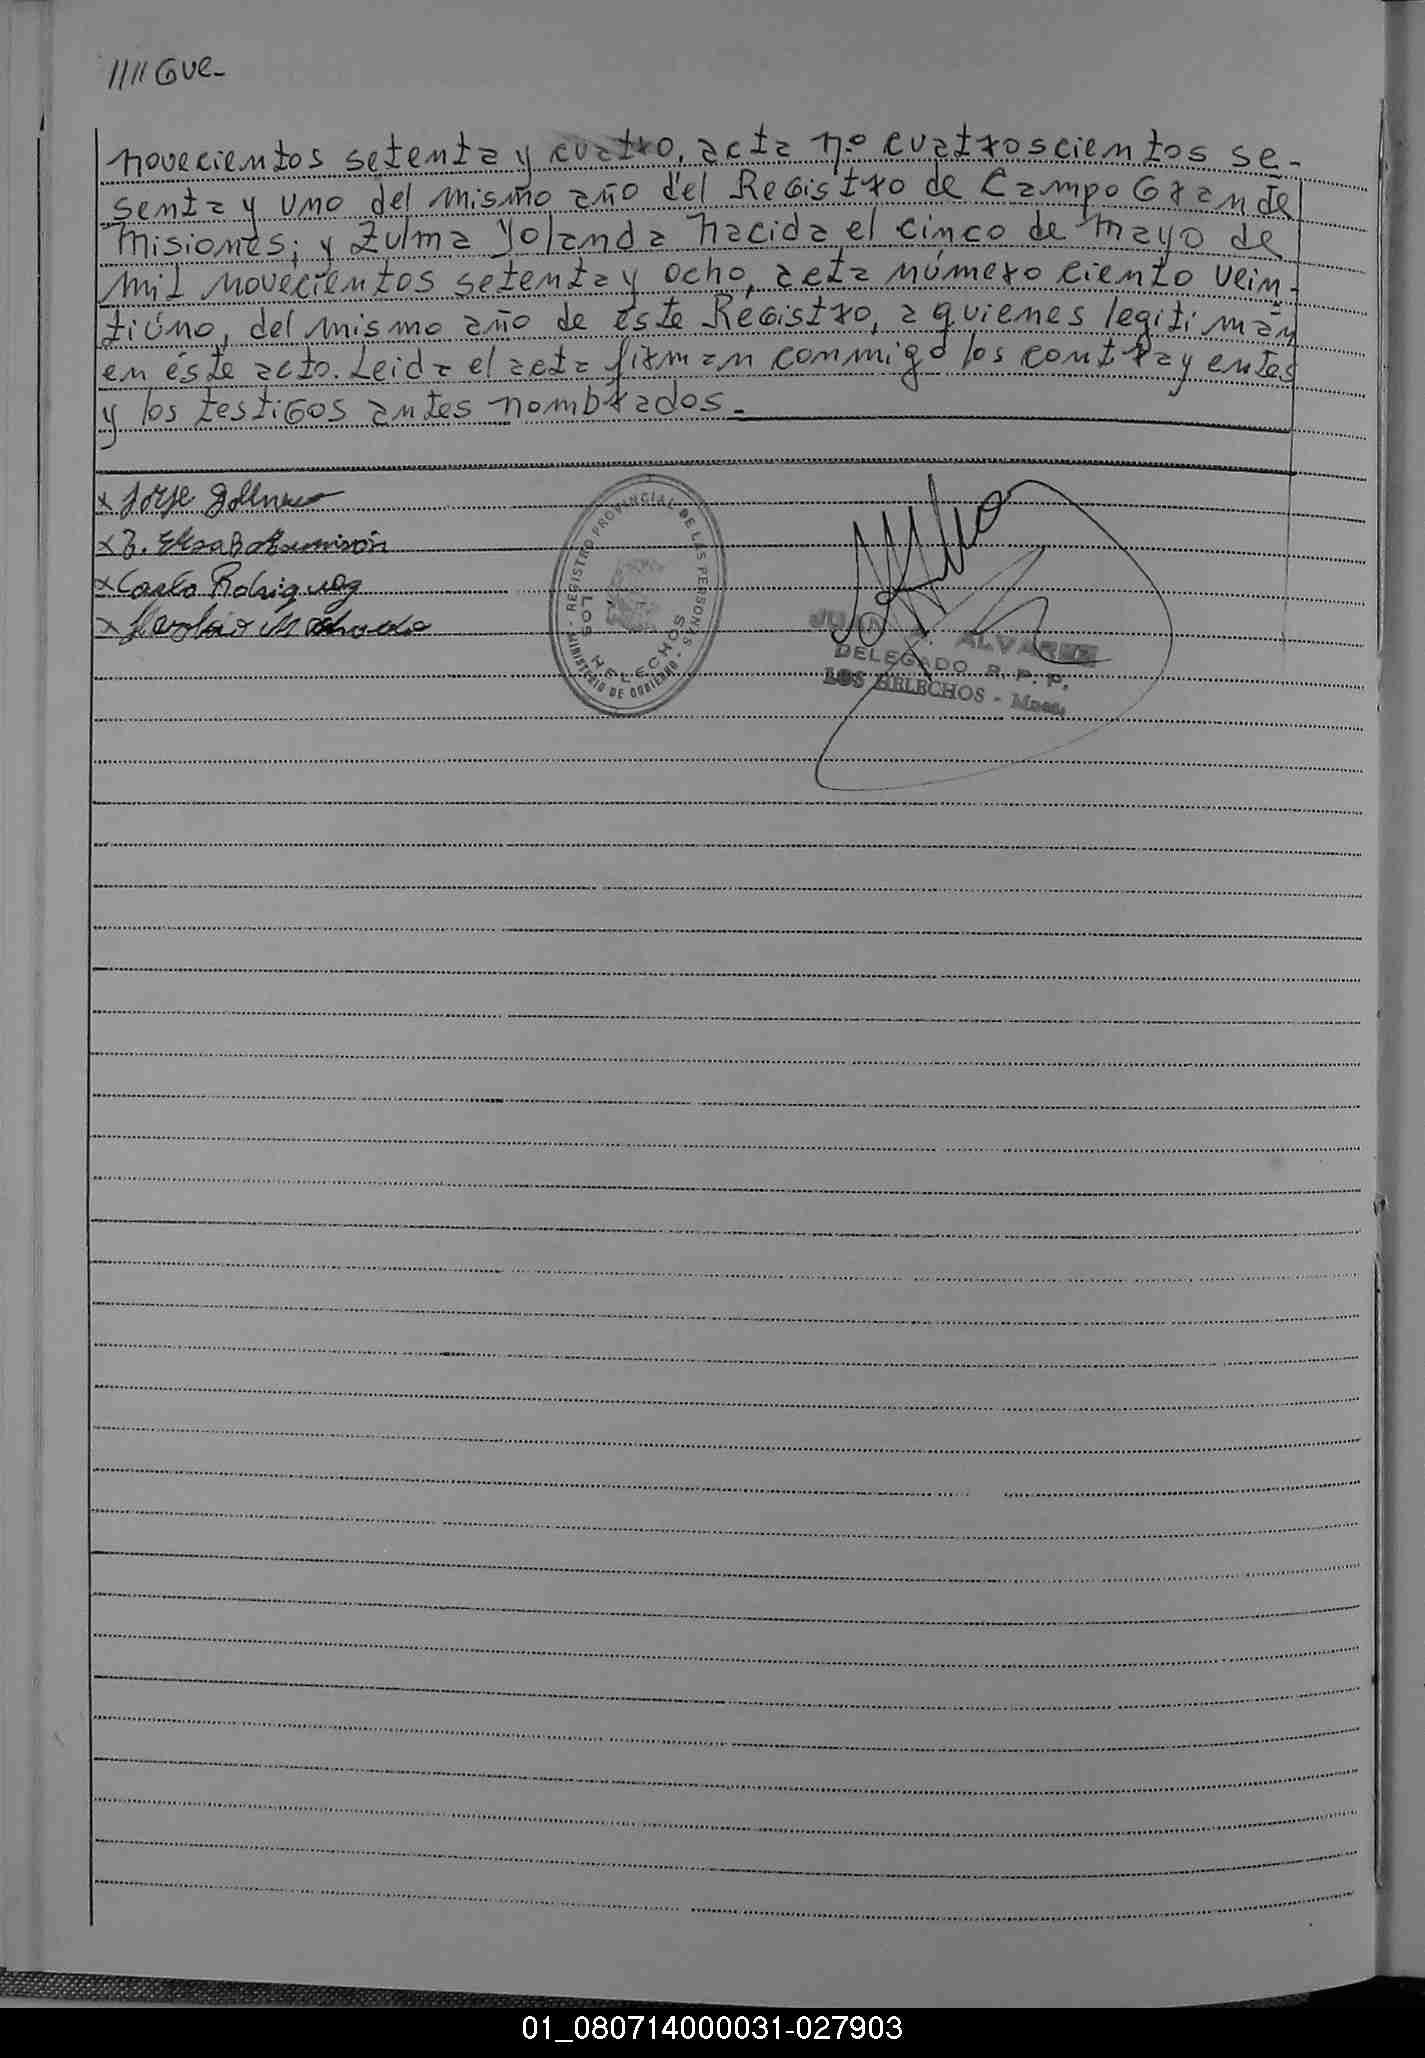 //// Gue-
novecientos setenta y cuatro, acta nº cuatroscientos se-
senta y uno del mismo año d'el Registro de Campo Grande
Misiones; y Zulma Yolanda nacida el cinco de mayo de
mil novecientos setenta y ocho, acta número ciento vein-
tiúno, del mismo año de éste Registro, a quienes legitiman
en éste acto. Leida el acta firman conmigo los contrayentes
y los testigos antes nombrados.-
x Jorge
x B. Elsa
x Carlo Rodriguez
x
MINISTERIO DE GOBIERNO - REGISTRO PROVINCIAL DE LAS PERSONAS -
LOS HELECHOS
JUAN ALVAREZ
DELEGADO R. P. P.
LOS HELECHOS - Mnes.
01_080714000031-027903